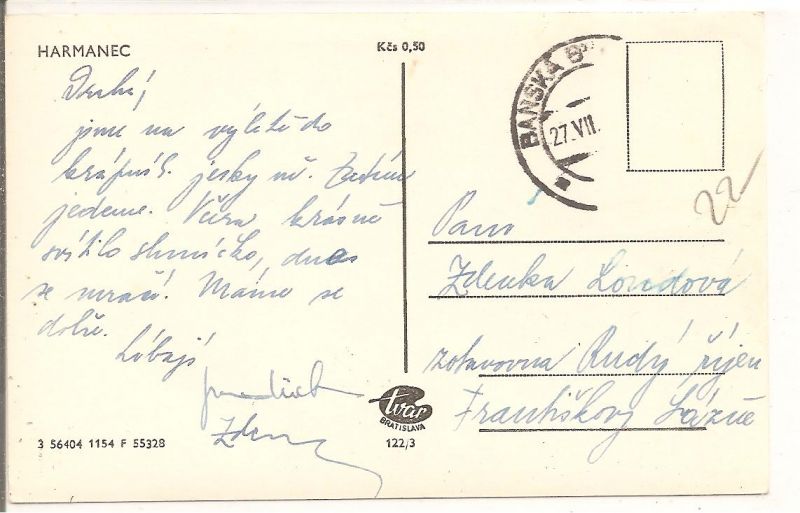 HARMANEC
Kčs 0,50
Drahá,
jsme na výletě do
krápník. jesky ně. Zatím
jedeme. Včera krásně
svítilo sluníčko, dnes
se mračí. Máme se
dobře.
Líbají
Zden
3 56404 1154 F 55328
tvar
BRATISLAVA
122/3
BANSKÁ B
27.VII.
22
Paní
Zdenka Londová
zotavovna Rudý říjen
Františkovy Lázně